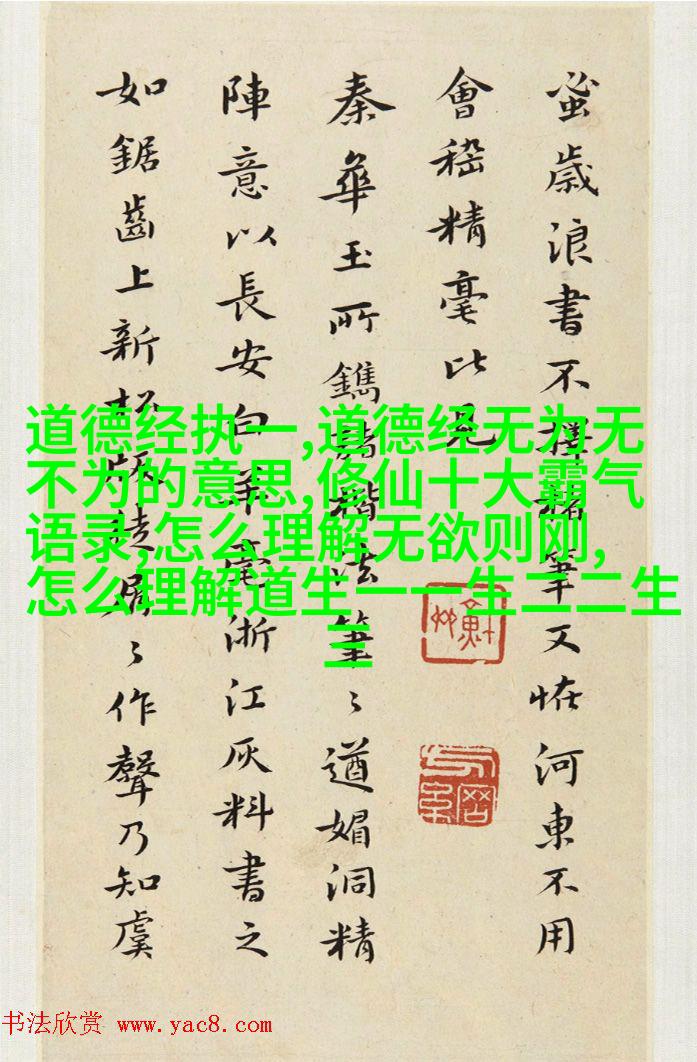 蚤歲浪書不擇筆又怪河東不用
會稽精毫此見
秦華玉所鐫諸楷法筆〻遒媚洞精
陣意以長安白羊毫浙江灰料書之
如鋸齒上新版徒屑〻作聲乃知虞
道德经执一,道德经无为无
不为的意思,修仙十大霸气
语录,怎么理解无欲则刚,
怎么理解道生一一生二二生
三
书法欣赏 www.yac8.com